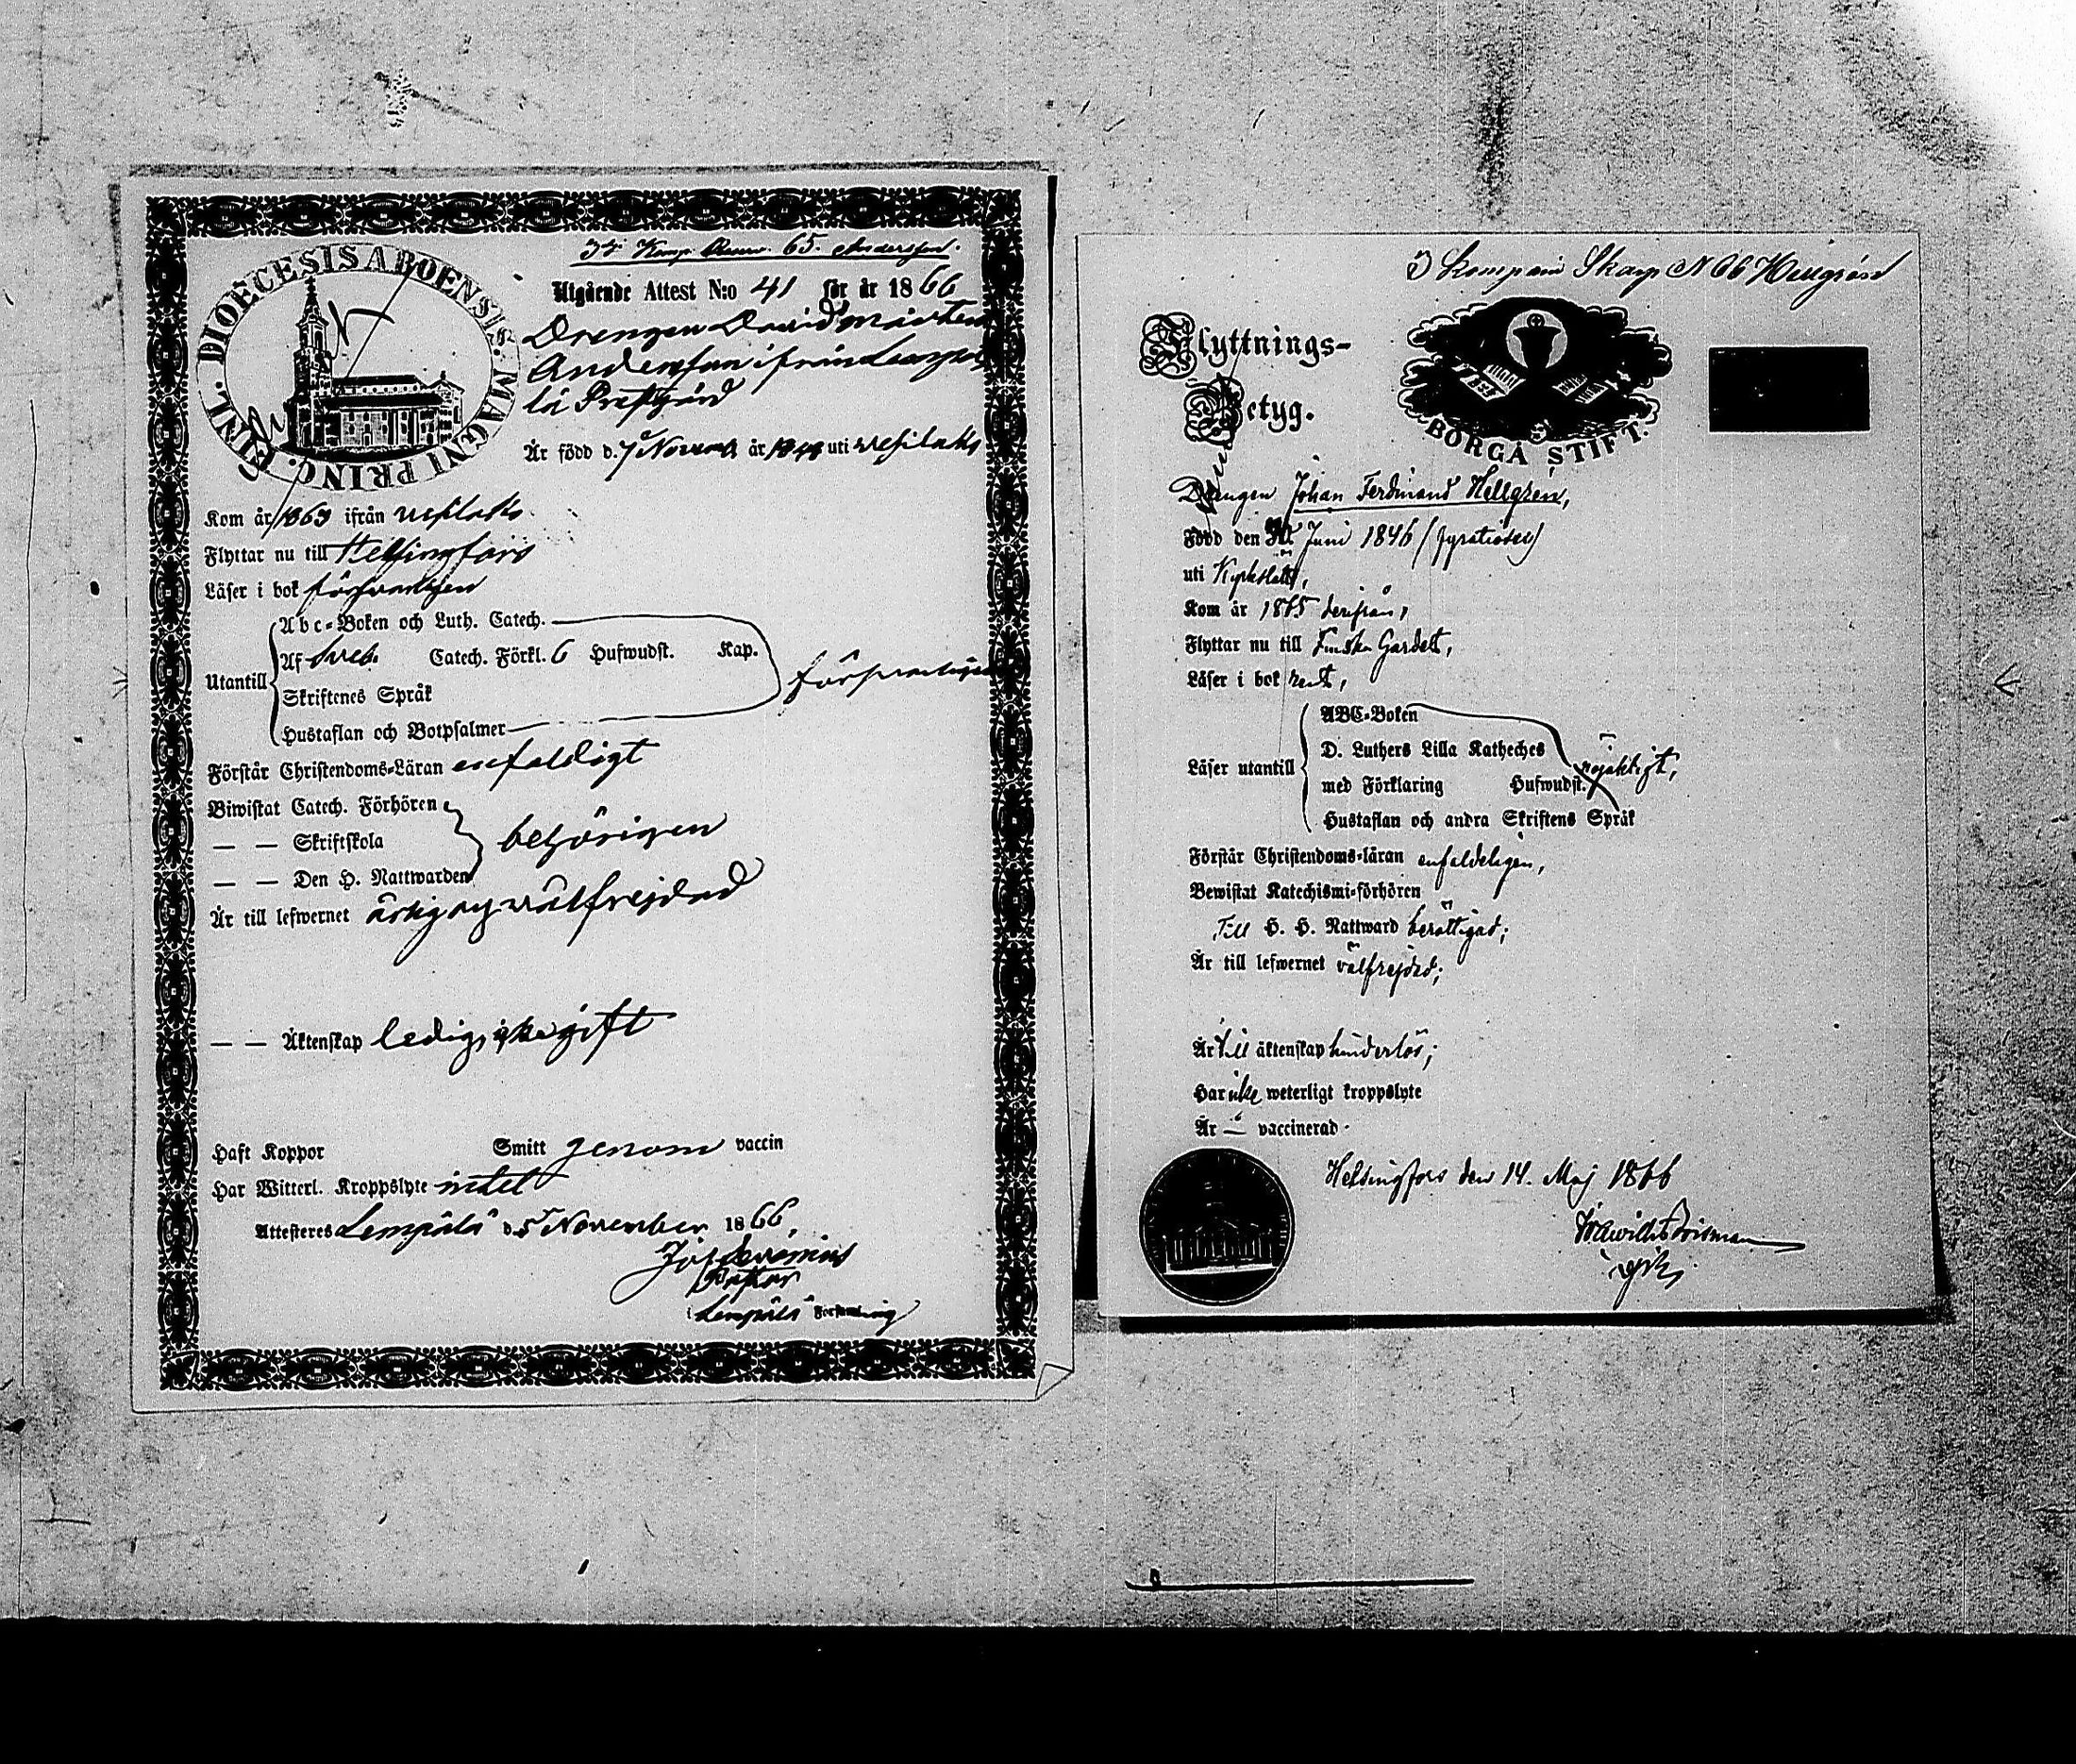 DIOECESIS ABOENSIS. MAGNI PRINC. FINL.
3 Komp. 65. Andersson.
Utgående Attest N:o 41 för år 1866
Drengen David Mårten
Andersson ifrån Lempä
lä Prestgård
Är född d. 7 Novemb. år 1844 uti Vesilaks
Kom år 1863 ifrån Vesilaks
Flyttar nu till Helsingfors
Läser i bok försvarligen
Utantill
Abc-Boken och Luth. Catech.
Af Sveb. Catech. Förkl. 6 Hufwudst. Kap.
Skriftenes Språk
Hustaflan och Botpsalmer
försvarligen
Förstår Christendoms-Läran enfaldigt
Biwistat Catech. Förhören
— — Skriftskola
— — Den H. Nattwarden
behörigen
Är till lefwernet ärlig og välfrejdad
— — Äktenskap ledig, icke gift
Haft Koppor Smitt genom vaccin
Har Witterl. Kroppslyte intet
Attesteres Lempälä d. 5 November 1866,
Pastor
i Lempälä Församling
3 Kompani Skarp N 66 Hellgrén
Flyttnings-
Betyg.
BORGÅ STIFT.
Drengen Johan Ferdinand Hellgrén,
Född den Juni 1846
uti Kyrkslätt,
Kom år 1865 derifrån,
Flyttar nu till Finska Gardet,
Läser i bok rent,
Läser utantill
ABC-Boken
D. Luthers Lilla Katheches
med Förklaring Hufwudst.
Hustaflan och andra Skriftens Språk
nöjaktigt,
Förstår Christendoms-läran enfaldeligen,
Bewistat Katechismi-förhören
Till H. H. Nattward berättigad;
Är till lefwernet välfrejdad;
Är till äktenskap hinderlös;
Har icke weterligt kroppslyte
Är — vaccinerad.
Helsingfors den 14. Maj 1866